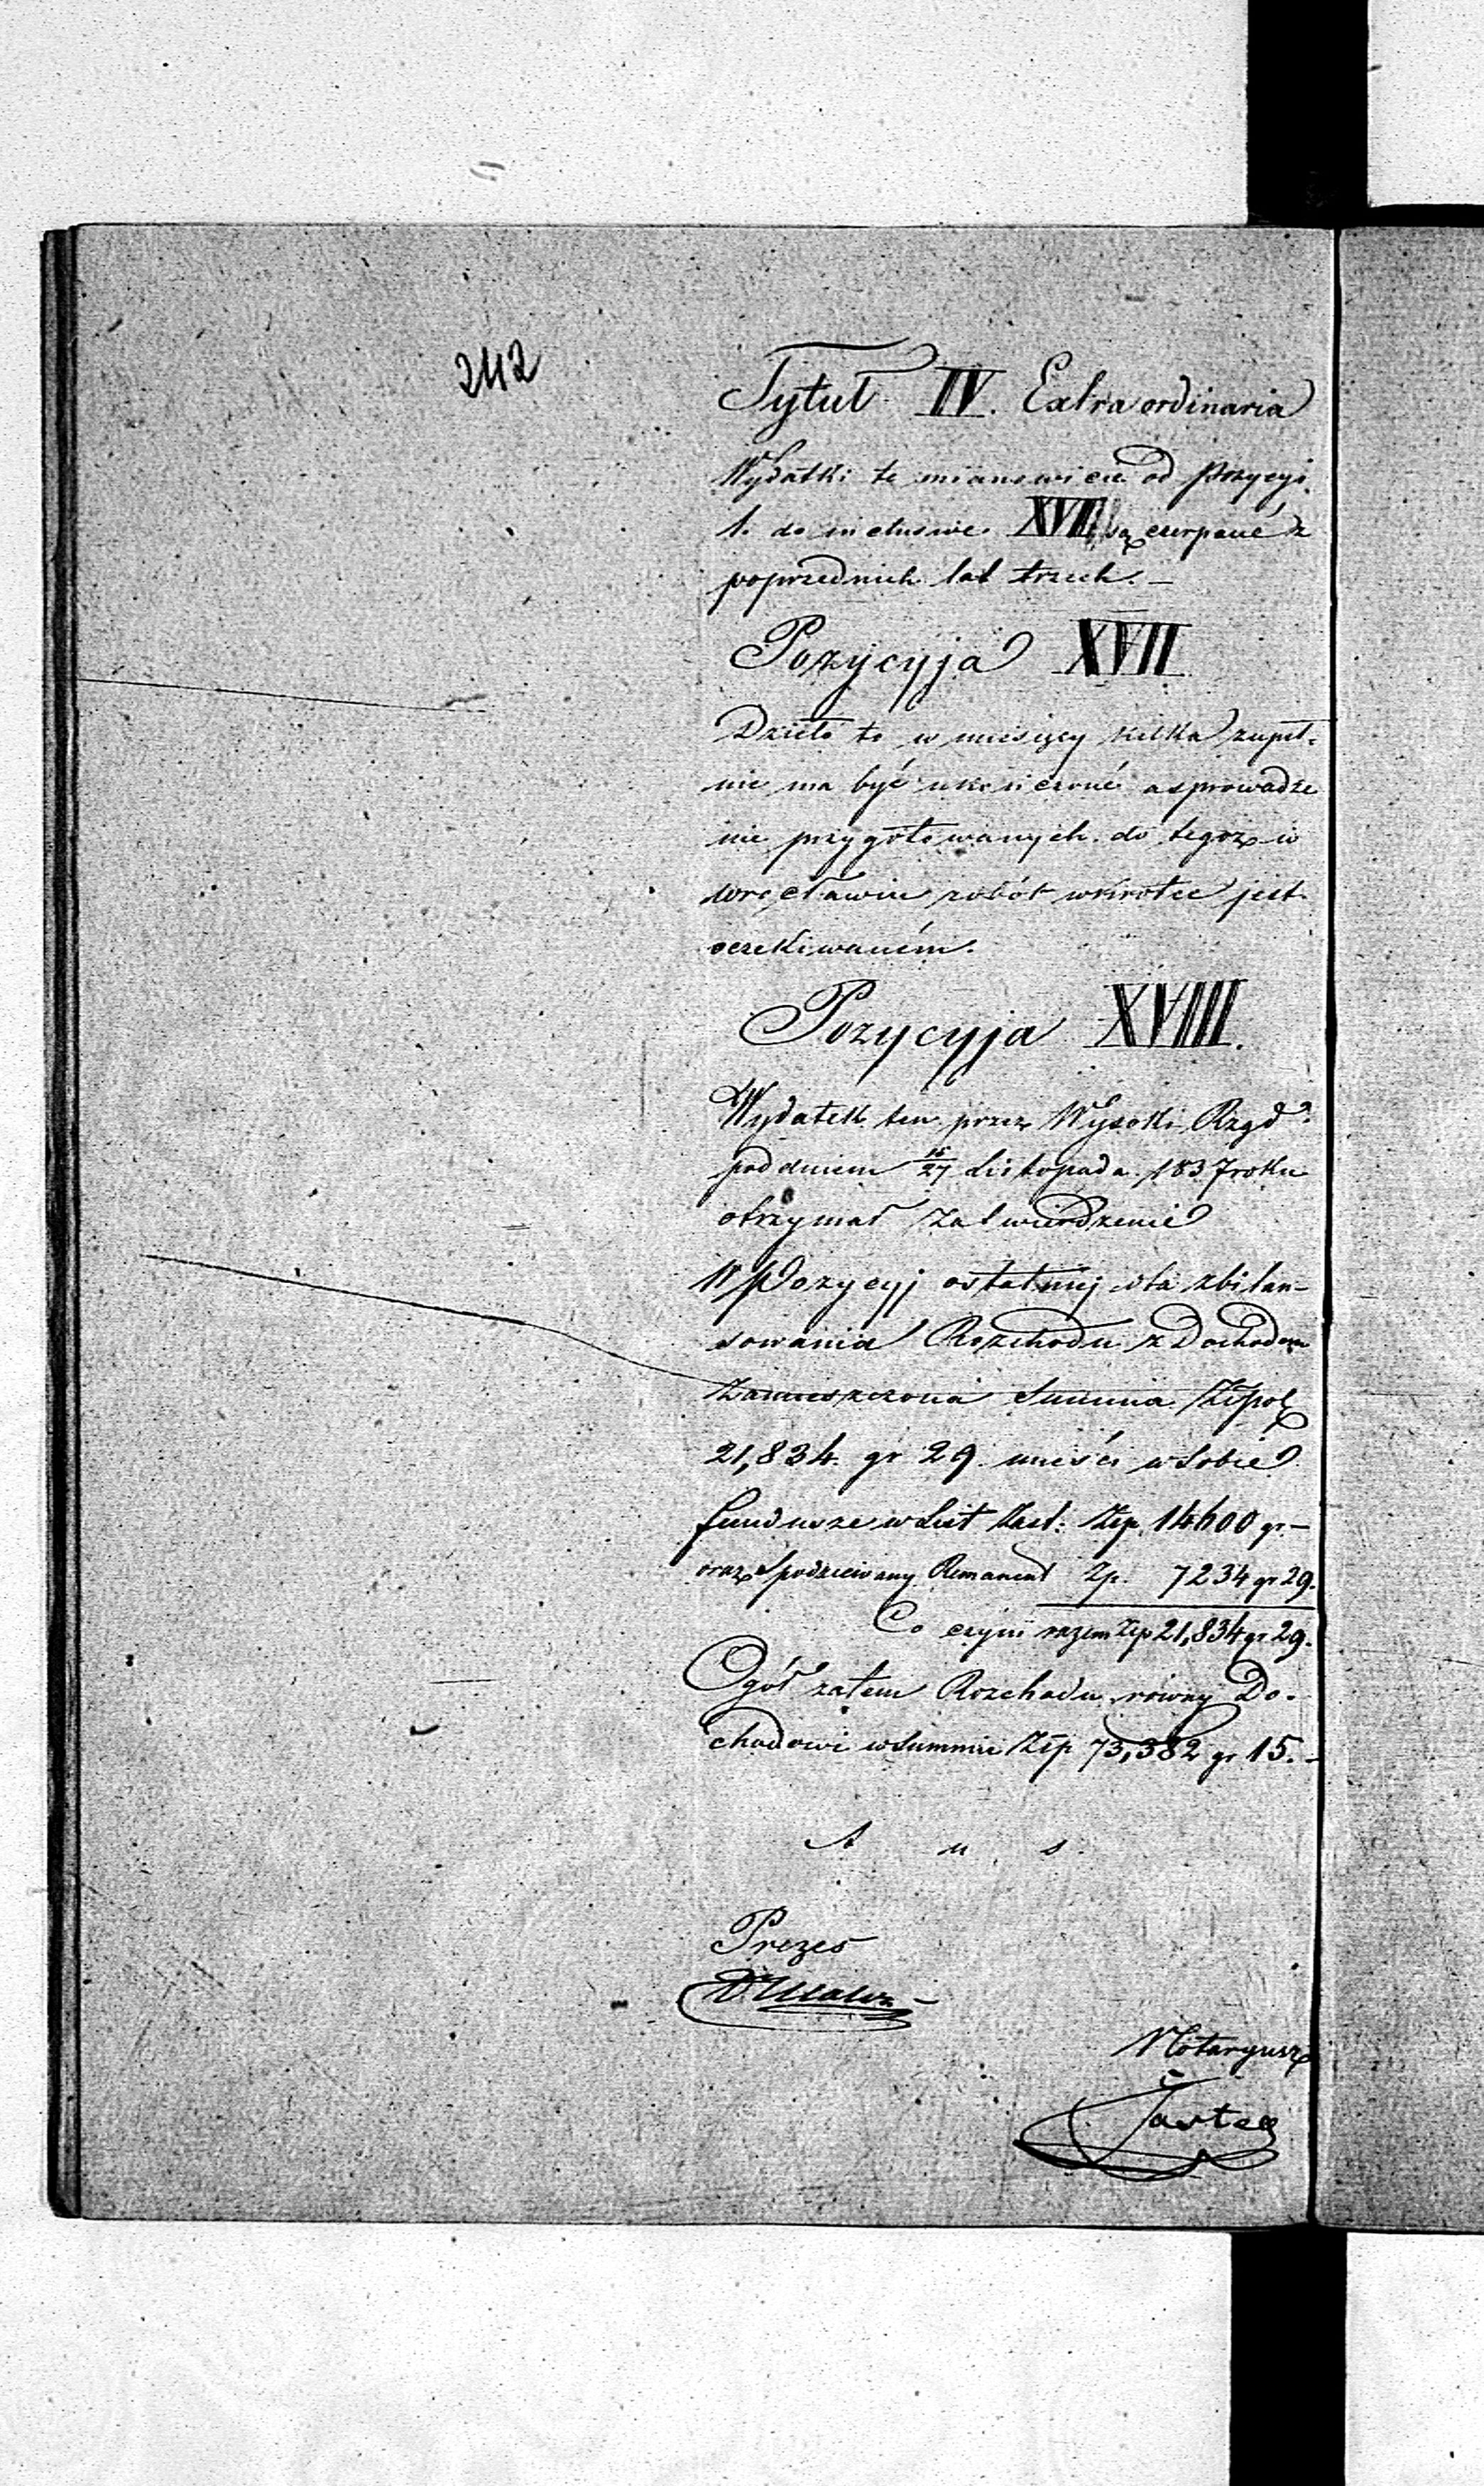 242
Tytuł IV. Extraordinaria
Wydatki te mianowicie od Pozycyi
1. do inclusive XVII są czerpané z
poprzednich lat trzech. —
Pozycyja XVII
Dzieło to w miesięcy kilka zupeł-
nie ma być ukończoné a sprowadze
nie przygotowanych do tegoż w
robót wkrótce jest
oczekiwaném.
Pozycyja XVIII.
Wydatek ten przez Wysoki Rząd
pod dniem 15/27 Listopada 1837 roku
otrzymał zatwierdzenie
W Pozycyj ostatniej dla zbilan-
sowania Rozchodu z Dochodem
zamieszczona Summa Złpol
21,834. gr 29. mieści w sobie
fundusze w List Zast: Złp. 14600 gr —
oraz spodziewany Remanent Zp. 7234 gr 29.
Co czyni razem Złp 21,834 gr 29.
Ogół zatem Rozchodu równy Do-
chodowi w Summie Złp 73,382 gr 15. —
Prezes
Notaryusz